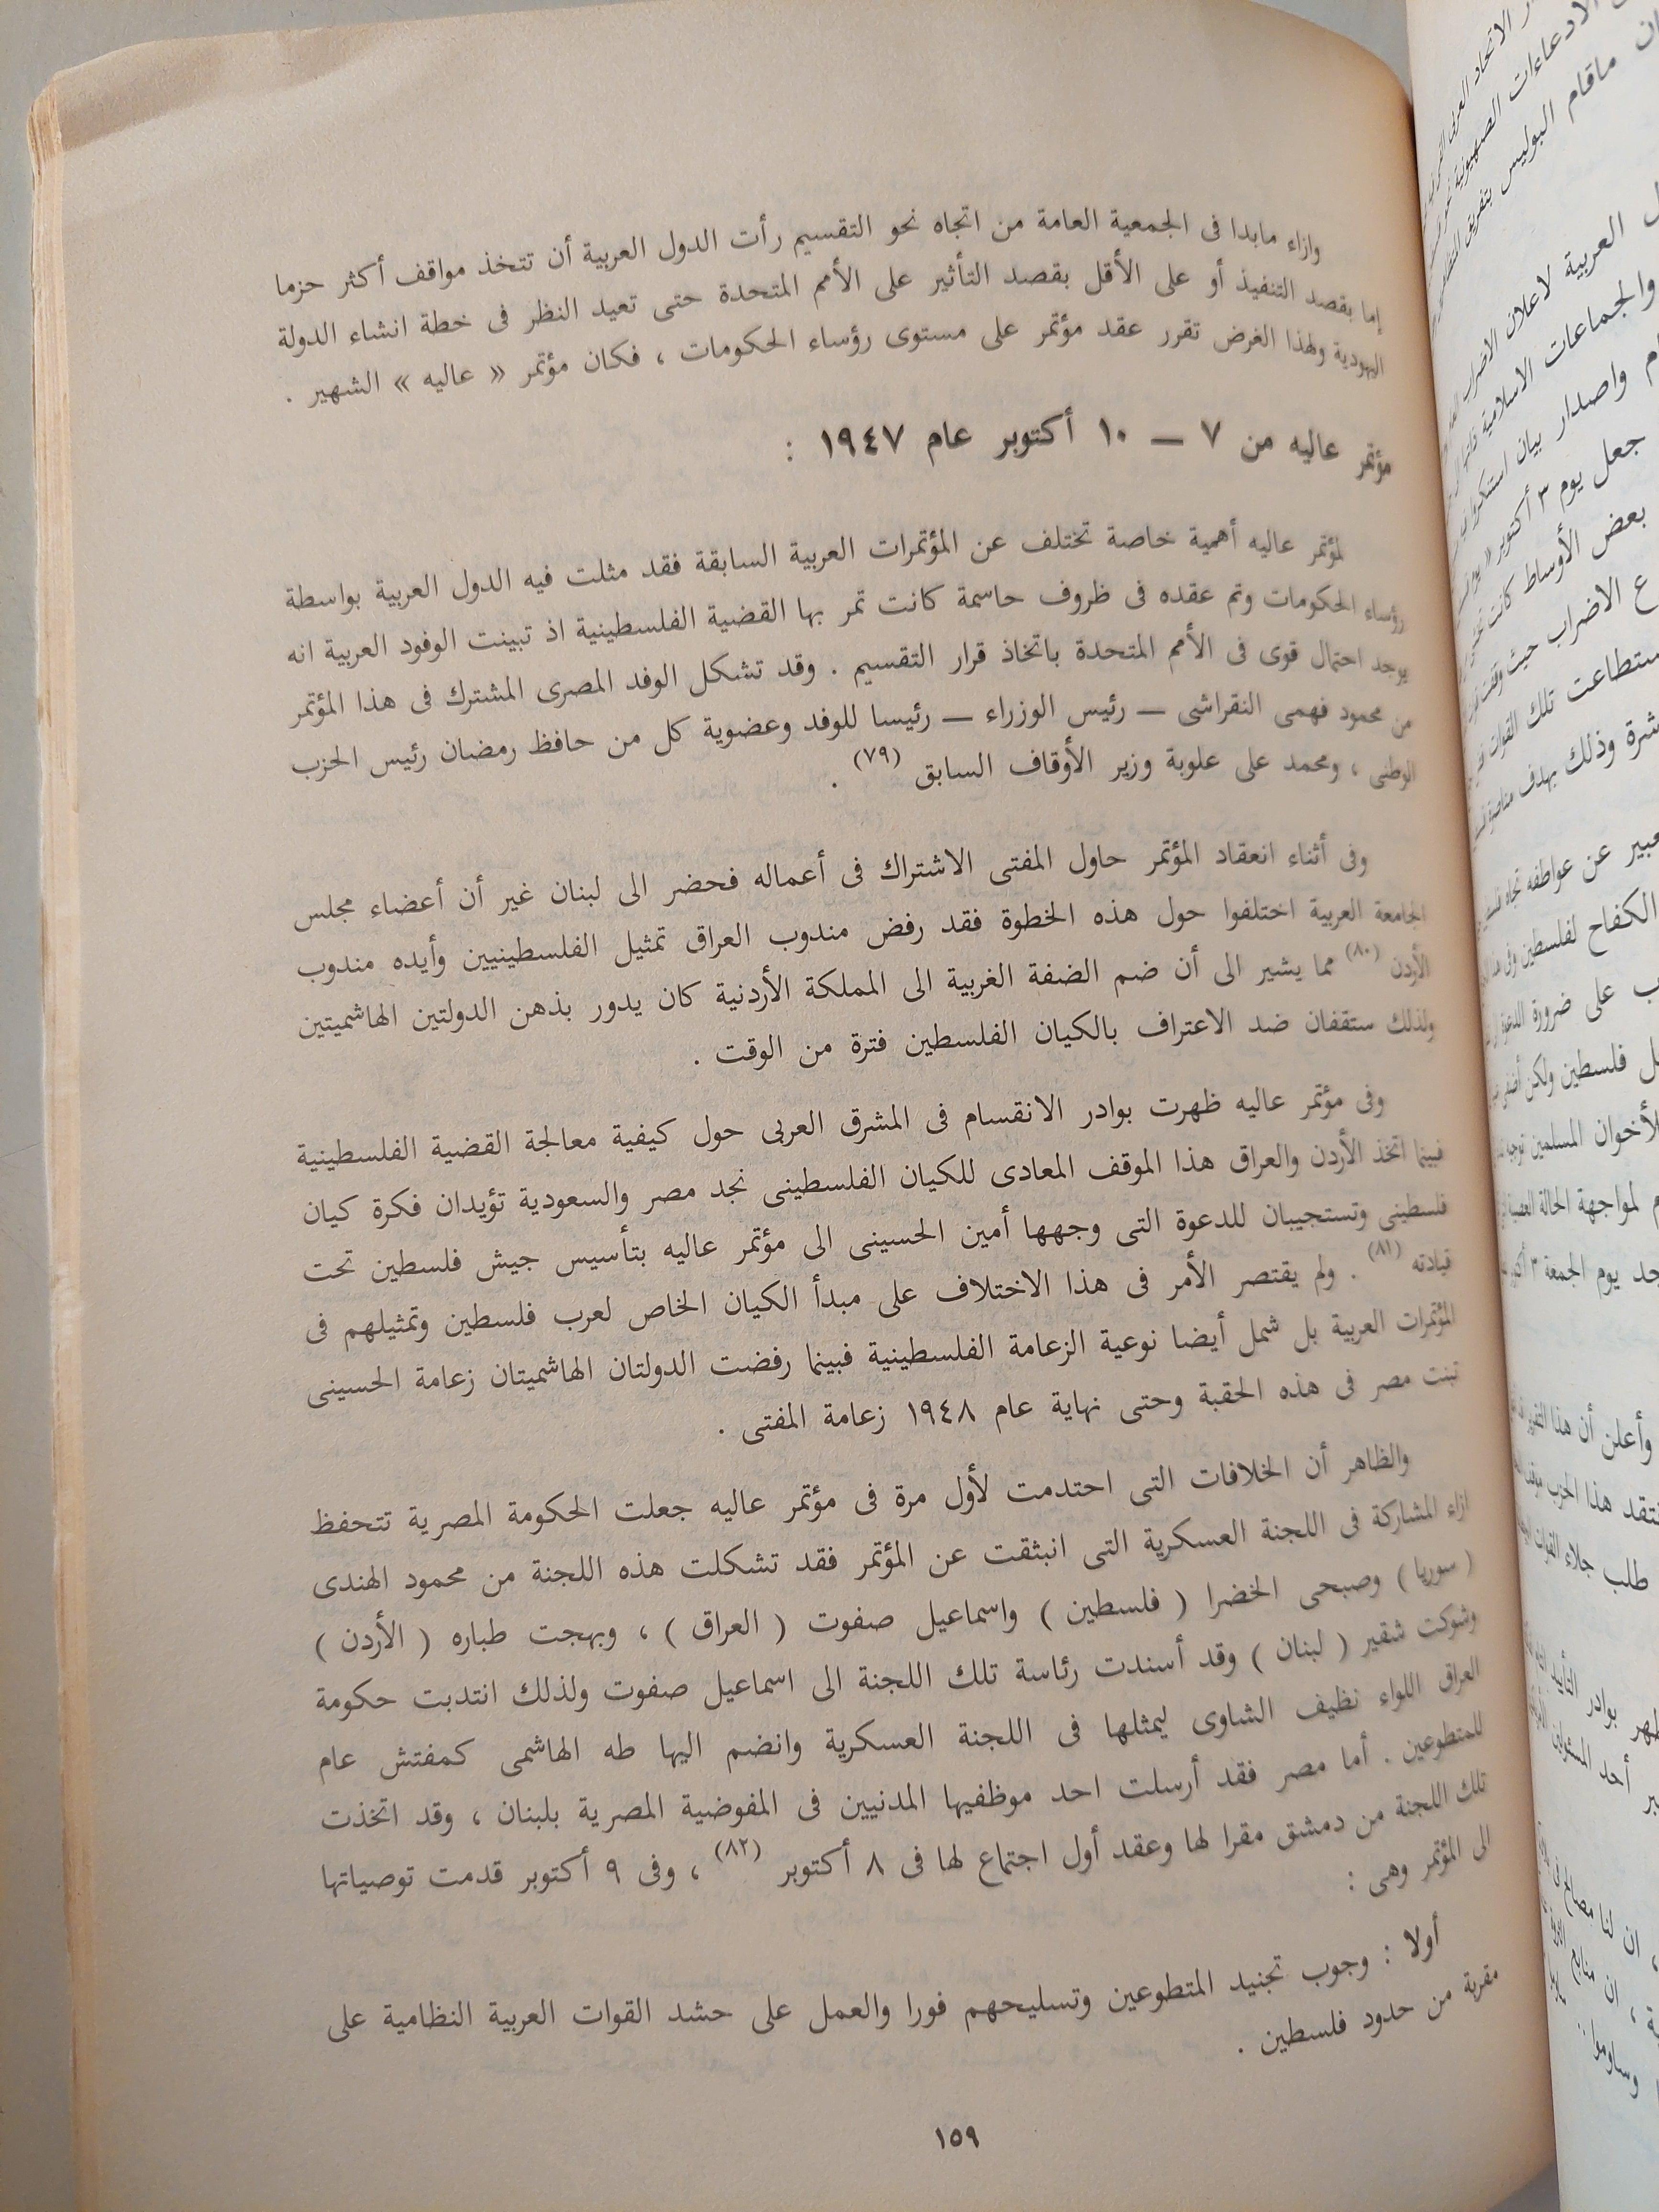 وازاء مابدا فى الجمعية العامة من اتجاه نحو التقسيم رأت الدول العربية أن تتخذ مواقف أكثر حزما
إما بقصد التنفيذ أو على الأقل بقصد التأثير على الأمم المتحدة حتى تعيد النظر فى خطة انشاء الدولة
اليهودية ولهذا الغرض تقرر عقد مؤتمر على مستوى رؤساء الحكومات ، فكان مؤتمر « عاليه » الشهير .
مؤتمر عاليه من ٧ — ١٠ أكتوبر عام ١٩٤٧ :
لمؤتمر عاليه أهمية خاصة تختلف عن المؤتمرات العربية السابقة فقد مثلت فيه الدول العربية بواسطة
رؤساء الحكومات وتم عقده فى ظروف حاسمة كانت تمر بها القضية الفلسطينية اذ تبينت الوفود العربية انه
يوجد احتمال قوى فى الأمم المتحدة باتخاذ قرار التقسيم . وقد تشكل الوفد المصرى المشترك فى هذا المؤتمر
من محمود فهمى النقراشى — رئيس الوزراء — رئيسا للوفد وعضوية كل من حافظ رمضان رئيس الحزب
الوطنى ، ومحمد على علوبة وزير الأوقاف السابق (٧٩) .
وفى أثناء انعقاد المؤتمر حاول المفتى الاشتراك فى أعماله فحضر الى لبنان غير أن أعضاء مجلس
الجامعة العربية اختلفوا حول هذه الخطوة فقد رفض مندوب العراق تمثيل الفلسطينيين وأيده مندوب
الأردن (٨٠) مما يشير الى أن ضم الضفة الغربية الى المملكة الأردنية كان يدور بذهن الدولتين الهاشميتين
ولذلك ستقفان ضد الاعتراف بالكيان الفلسطين فترة من الوقت .
وفى مؤتمر عاليه ظهرت بوادر الانقسام فى المشرق العربى حول كيفية معالجة القضية الفلسطينية
فبينما اتخذ الأردن والعراق هذا الموقف المعادى للكيان الفلسطينى نجد مصر والسعودية تؤيدان فكرة كيان
فلسطينى وتستجيبان للدعوة التى وجهها أمين الحسينى الى مؤتمر عاليه بتأسيس جيش فلسطين تحت
قيادته (٨١) . ولم يقتصر الأمر فى هذا الاختلاف على مبدأ الكيان الخاص لعرب فلسطين وتمثيلهم فى
المؤتمرات العربية بل شمل أيضا نوعية الزعامة الفلسطينية فبينما رفضت الدولتان الهاشميتان زعامة الحسينى
تبنت مصر فى هذه الحقبة وحتى نهاية عام ١٩٤٨ زعامة المفتى .
والظاهر أن الخلافات التى احتدمت لأول مرة فى مؤتمر عاليه جعلت الحكومة المصرية تتحفظ
ازاء المشاركة فى اللجنة العسكرية التى انبثقت عن المؤتمر فقد تشكلت هذه اللجنة من محمود الهندى
( سوريا ) وصبحى الخضرا ( فلسطين ) واسماعيل صفوت ( العراق ) ، وبهجت طباره ( الأردن )
وشوكت شقير ( لبنان ) وقد أسندت رئاسة تلك اللجنة الى اسماعيل صفوت ولذلك انتدبت حكومة
العراق اللواء نظيف الشاوى ليمثلها فى اللجنة العسكرية وانضم اليها طه الهاشمى كمفتش عام
للمتطوعين . أما مصر فقد أرسلت احد موظفيها المدنيين فى المفوضية المصرية بلبنان ، وقد اتخذت
تلك اللجنة من دمشق مقرا لها وعقد أول اجتماع لها فى ٨ أكتوبر (٨٢) ، وفى ٩ أكتوبر قدمت توصياتها
الى المؤتمر وهى :
أولا : وجوب تجنيد المتطوعين وتسليحهم فورا والعمل على حشد القوات العربية النظامية على
مقربة من حدود فلسطين .
١٥٩
الادعاءات الصهيونية
ماقام البوليس بتفريق
العربية لاعلان الاضراب
والجماعات الاسلامية
واصدار بيان استنكروا
جعل يوم ٣ أكتوبر
بعض الأوساط كانت
الاضراب حيث وقفت
ستطاعت تلك القوات
وذلك بهدف مناصرة
عن عواطفه تجاه
الكفاح لفلسطين وفى
على ضرورة الدعوة
فلسطين ولكن
المسلمين
لمواجهة الحالة
يوم الجمعة ٣
وأعلن أن هذا
هذا الحزب
طلب جلاء القوات
بوادر
أحد
ان لنا